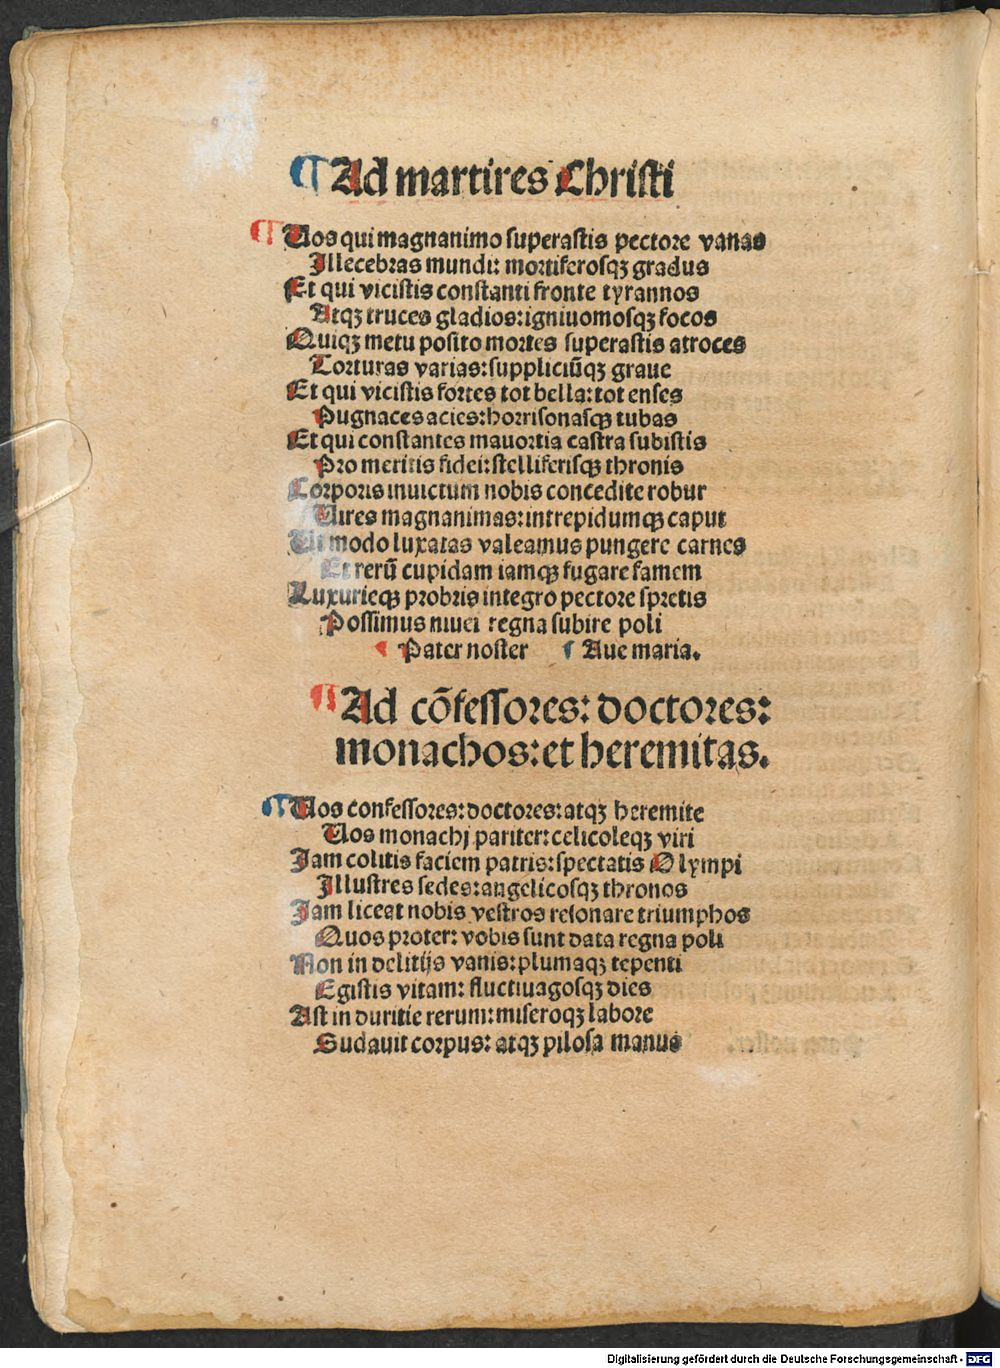 ¶ Ad martires Christi
¶ Vos qui magnanimo superastis pectore vanas
Illecebras mundi: mortiferosqꝫ gradus
Et qui vicistis constanti fronte tyrannos
Atqꝫ truces gladios: igniuomosqꝫ focos
Quiqꝫ metu posito mortes superastis atroces
Torturas varias: suppliciūqꝫ graue
Et qui vicistis fortes tot bella: tot enses
Pugnaces acies: horrisonasqꝫ tubas
Et qui constantes mauortia castra subistis
Pro meritis fidei: stelliferisqꝫ thronis
Corporis inuictum nobis concedite robur
Vires magnanimas: intrepidumqꝫ caput
Ut modo luxatas valeamus pungere carnes
Et rerū cupidam iamqꝫ fugare famem
Luxurieqꝫ probris integro pectore spretis
Possimus niuei regna subire poli
¶ Pater noster ¶ Aue maria.
¶ Ad cōfessores: doctores:
monachos: et heremitas.
¶ Vos confessores: doctores: atqꝫ heremite
Vos monachj pariter: celicoleqꝫ viri
Iam colitis faciem patris: spectatis Olympi
Illustres sedes: angelicosqꝫ thronos
Iam liceat nobis vestros resonare triumphos
Quos proter: vobis sunt data regna poli
Non in delitijs vanis: plumaqꝫ tepenti
Egistis vitam: fluctiuagosqꝫ dies
Ast in duritie rerum: miseroqꝫ labore
Sudauit corpus: atqꝫ pilosa manus
Digitalisierung gefördert durch die Deutsche Forschungsgemeinschaft - DFG